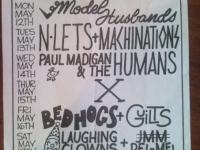 MON MAY 12TH
Model Husbands
TUES MAY 13TH
N-LETS + MACHINATIONS
WED MAY 14TH
PAUL MADIGAN & THE HUMANS
THUR MAY 15TH
X
FRI MAY 16TH
BEDHOGS + GUTS
SAT MAY
LAUGHING CLOWNS +